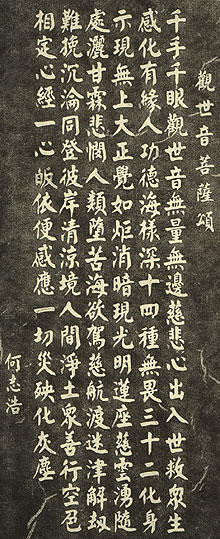 觀世音菩薩頌
千手千眼觀世音無量無邊慈悲心出入世救眾生
感化有緣人功德海樣深十四種無畏三十二化身
示現無上大正覺如炬消暗現光明蓮座慈雲湧隨
處灑甘霖悲憫人類墮苦海欲駕慈航渡迷津解劫
難挽沉淪同登彼岸清涼境人間淨土眾善行空色
相定心經一心皈依便感應一切災殃化灰塵
何志浩